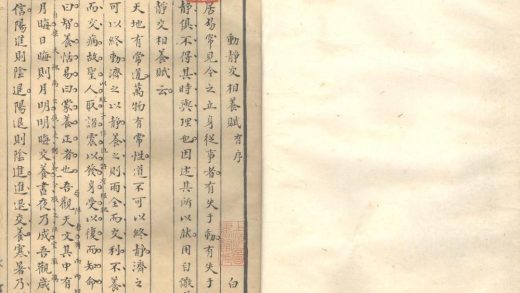 動靜交相養賦有序 白
居易常見今之立身從事者有失于動有失于
靜俱不得其時與理也因述其所以然用自儆
靜交相養賦云
天地有常道萬物有常性道不可以終靜濟之
可以終動濟之以靜養之則兩全而交利不養
而交病故聖人取諸震以發身受以復而知命
曰智養恬易曰蒙養正者也吾觀天文其中有
月晦日晦則月明明晦交養晝夜乃成吾觀歲
信陽進則陰退陽退則陰進進退交養寒暑乃